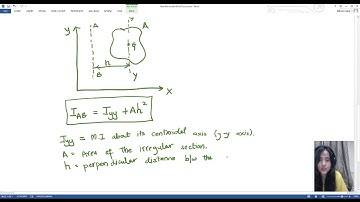 y
A
y
A
G
h
B
y
x
I_AB = I_yy + Ah²
I_yy = M.I about its centroidal axis (y-y axis).
A = Area of the irregular section.
h = perpendicular distance b/w the